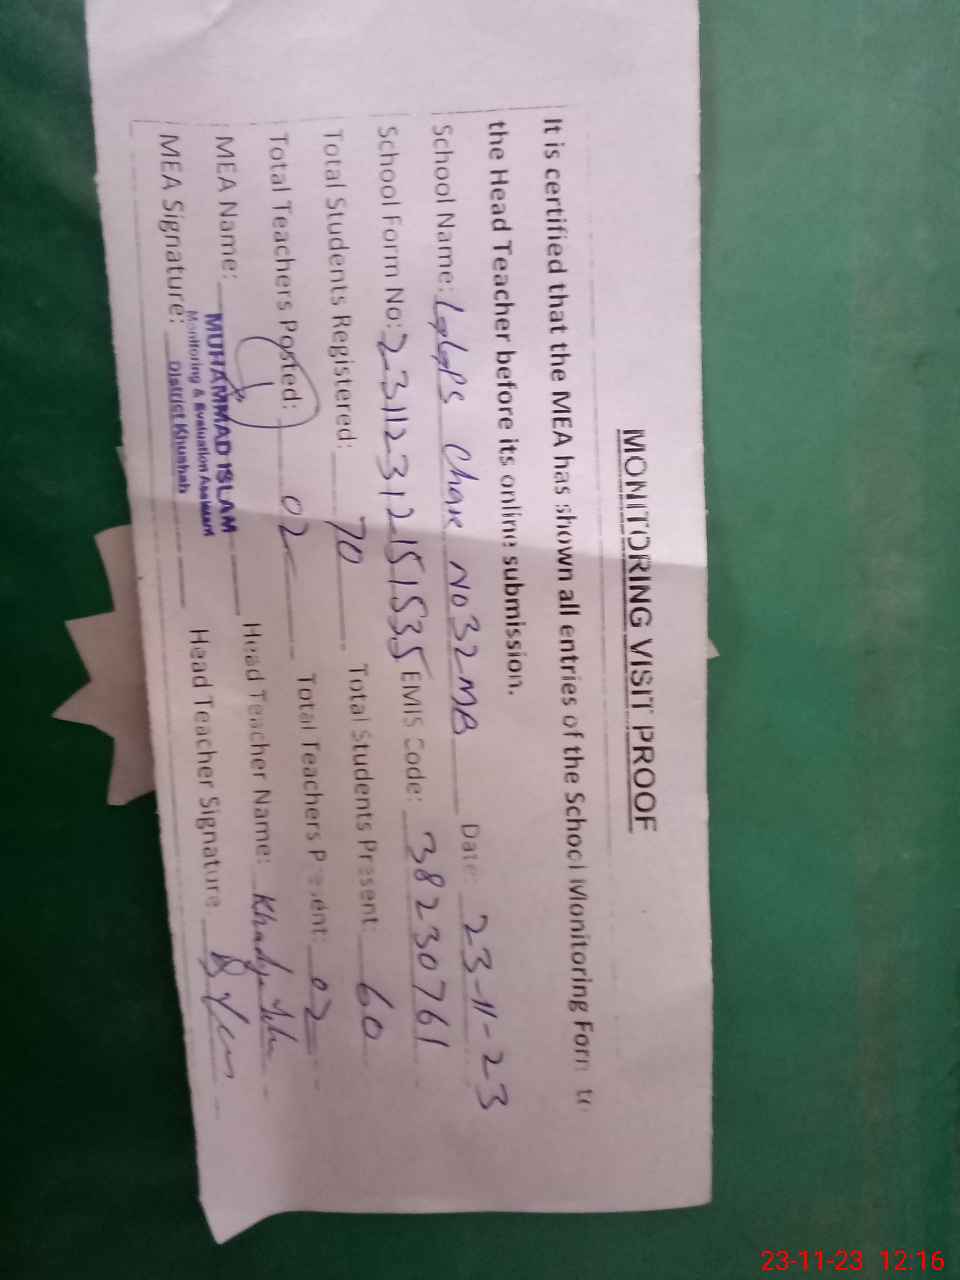 MONITORING VISIT PROOF
It is certified that the MEA has shown all entries of the School Monitoring Form to
the Head Teacher before its online submission.
School Name: GGPS Chak No 32 MB Date: 23-11-23
School Form No: 23112312151535 EMIS Code: 38230761
Total Students Registered: 70 Total Students Present: 60
Total Teachers Posted: 02 Total Teachers Present: 02
MEA Name: MUHAMMAD ISLAM Head Teacher Name: Khadija
Monitoring & Evaluation Assistant
MEA Signature: District Khushab Head Teacher Signature
23-11-23 12:16